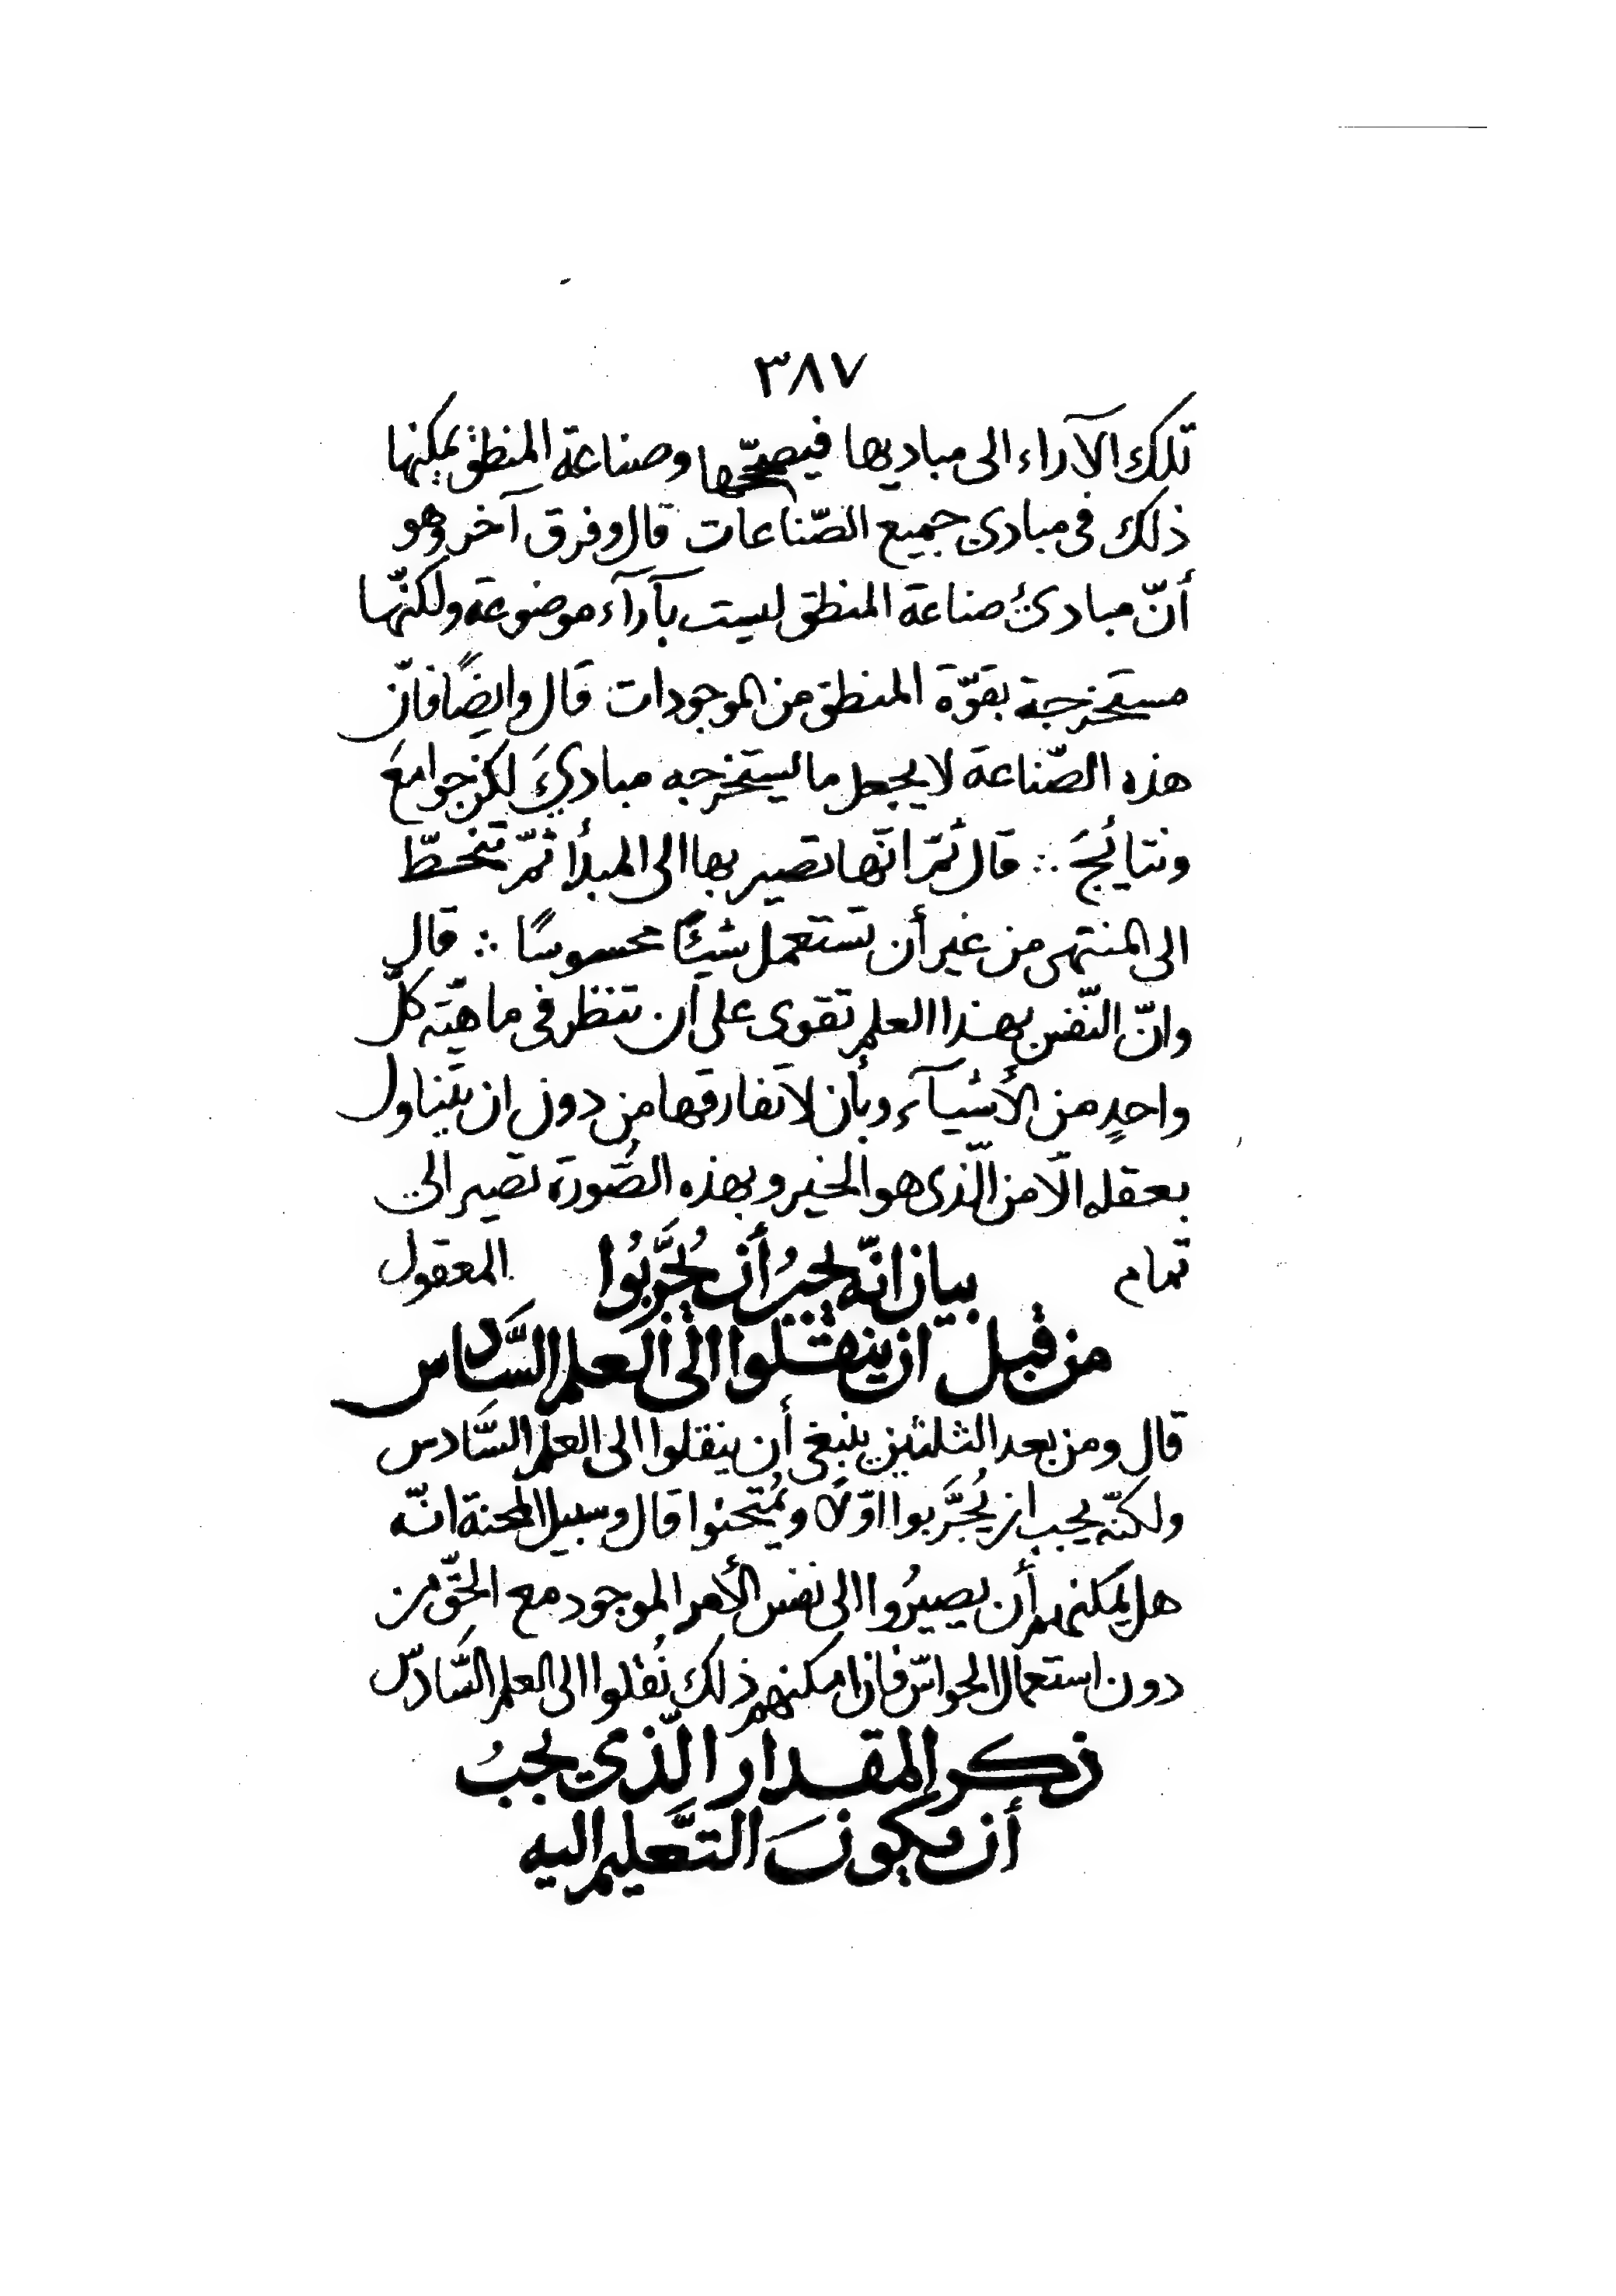 ٣٨٧
تلك الآراء الى مباديها فيصحّحها وصناعة المنطق يمكنها
ذلك فى مبادي جميع الصّناعات قال وفرق آخر وهو
أنّ مبادئ صناعة المنطق ليست بآرآء موضوعة ولكنّها
مستخرجة بقوّة المنطق من الموجودات قال وايضًا فانّ
هذه الصّناعة لا يجعل ما يستخرجه مباديَ لكن جوامعَ
ونتائجَ ∴ قال ثمّ انّها تصير بها الى المبدأ ثمّ تنحطّ
الى المنتهى من غير أن تستعمل شيئًا محسوسًا ∴ قال
وانّ النّفس بهذا العلم تقوى على أن تنظر فى ماهيّته كلّ
واحدٍ من الأشيآء وبأن لا تفارقها من دون ان يتناول
بعقله الّا من الّذى هو الخير وبهذه الصُّورة تصير الى
تمام بيان انّه يجبُ أن يُجَرَّبُوا المعقول
من قبل ان ينقلوا الى العلم السَّادس
قال ومن بعد الثلثين ينبغي أن ينقلوا الى العلم السَّادس
ولكنّه يجب ان يُجَرَّبوا اوّلًا ويُمتحنوا قال وسبيل المحنة انّه
هل يمكنهم أن يصيرُوا الى نفس الأمر الموجود مع الحقّ من
دون استعمال الحواسّ فان امكنهم ذلك نُقلوا الى العلم السَّادس
ذكر المقدار الّذي يجبُ
أن يكونَ التَّعليم اليه